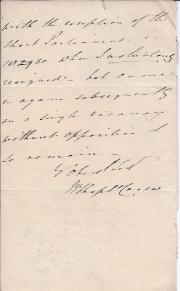 with the exception of the
short Parliament in
1829.30 when I voluntarily
resigned – but came in
again subsequently
on a single vacancy
without opposition &
so remain –